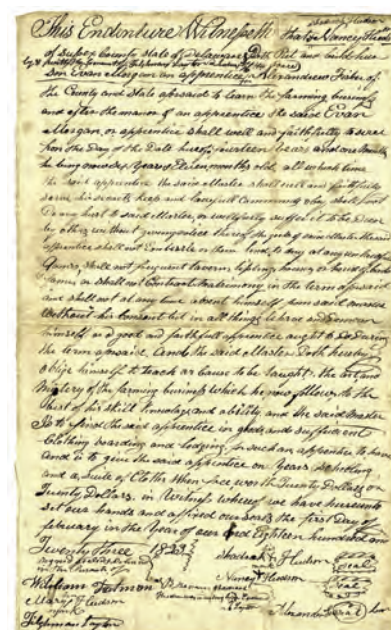 This Indenture Witnesseth that Nancy Hudson
of Sussex County State of Delaware Doth Put and bind her
Son Evan Morgan an apprentice to Alexandrew of
the County and State aforesaid to learn the farming business
and after the manner of an apprentice the said Evan
Morgan, or apprentice shall well and faithfully to serve
from the Day of the Date hereof fourteen Years and one Month
he being now six Years & Eleven months old, all which time
the said apprentice the said Master shall well and faithfully
serve his secrets keep and lawfull Commands obey shall not
Do any hurt to said Master, or willfully suffer it to be Done
by others without giving notice thereof the goods of said Master the said
apprentice shall not Embezzle or them lend, to any at any unlawfull
Games, shall not frequent taverns, tipling houses or houses of
shall not Contract matrimony in the term aforesaid
and shall not at any time absent himself from said masters
Without his Consent but in all things behave and Demean
himself as a good and faithfull apprentice aught to Do During
the term aforesaid. And the said Master Doth hereby
oblige himself to teach or Cause to be taught, the art and
Mistery of the farming business which he now follows to the
best of his skill knowledge and ability, and the said Master
Is to find the said apprentice in good and sufficient
Clothing boarding and lodging, for such an apprentice to have
and is to give the said apprentice one Years schooling
and a Suite of Cloths When free worth Twenty Dollars or
Twenty Dollars. in Witness whereof we have hereunto
set our hands and affixed our seals the first Day of
february in the Year of our Lord Eighteen hundred and
Twenty Three 1823
Signed Sealed
in the Presence of
Shadrach Hudson Seal
Nancy Hudson Seal
William
Mary Hudson
mark
Tilghman Layton
Seal